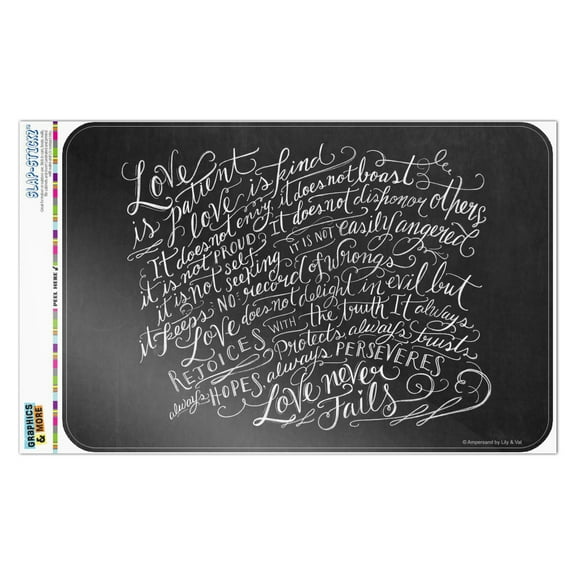 Love is patient love is kind
It does not envy, it does not boast
it is not PROUD It does not dishonor others,
it is not self seeking IT IS NOT easily angered
it keeps NO record of wrongs
Love does not delight in evil but
REJOICES WITH the truth It always
Protects, always trusts
always HOPES, always PERSEVERES
Love never
Fails
© Ampersand by Lily & Val
SLAP-STICKZ™
PEEL HERE
GRAPHICS
& MORE